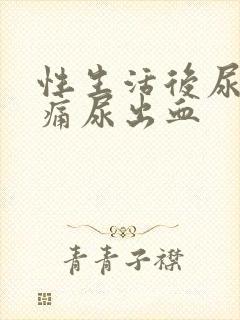 性生活後尿
痛尿出血
青青子襟